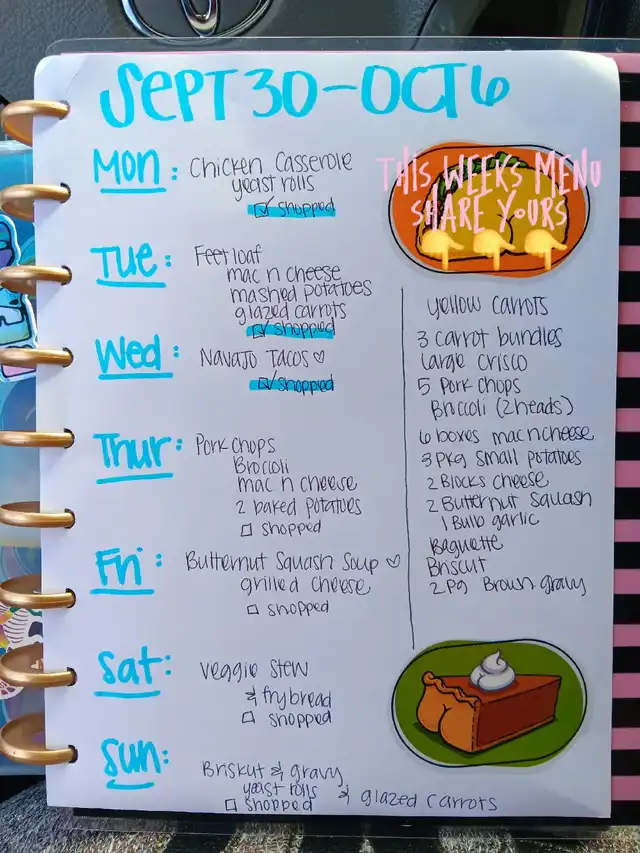 SEPT 30-OCT 6
Mon: Chicken Casserole
yeast rolls
☑ shopped
Tue: Feet loaf
mac n cheese
mashed potatoes
glazed carrots
☑ shopped
Wed: Navajo Tacos ♡
☑ shopped
Thur: Pork chops
Broccoli
mac n cheese
2 baked potatoes
☐ shopped
Fri: Butternut Squash Soup ♡
grilled cheese
☐ shopped
Sat: Veggie Stew
& frybread
☐ shopped
Sun: Briskut & gravy
yeast rolls
☐ shopped & glazed carrots
THIS WEEKS MENU
SHARE YOURS
yellow carrots
3 carrot bundles
Large Crisco
5 Pork chops
Broccoli (2 heads)
6 boxes mac n cheese
3 Pkg small potatoes
2 Blocks cheese
2 Butternut squash
1 Bulb garlic
Baguette
Briscuit
2 Pg Brown gravy